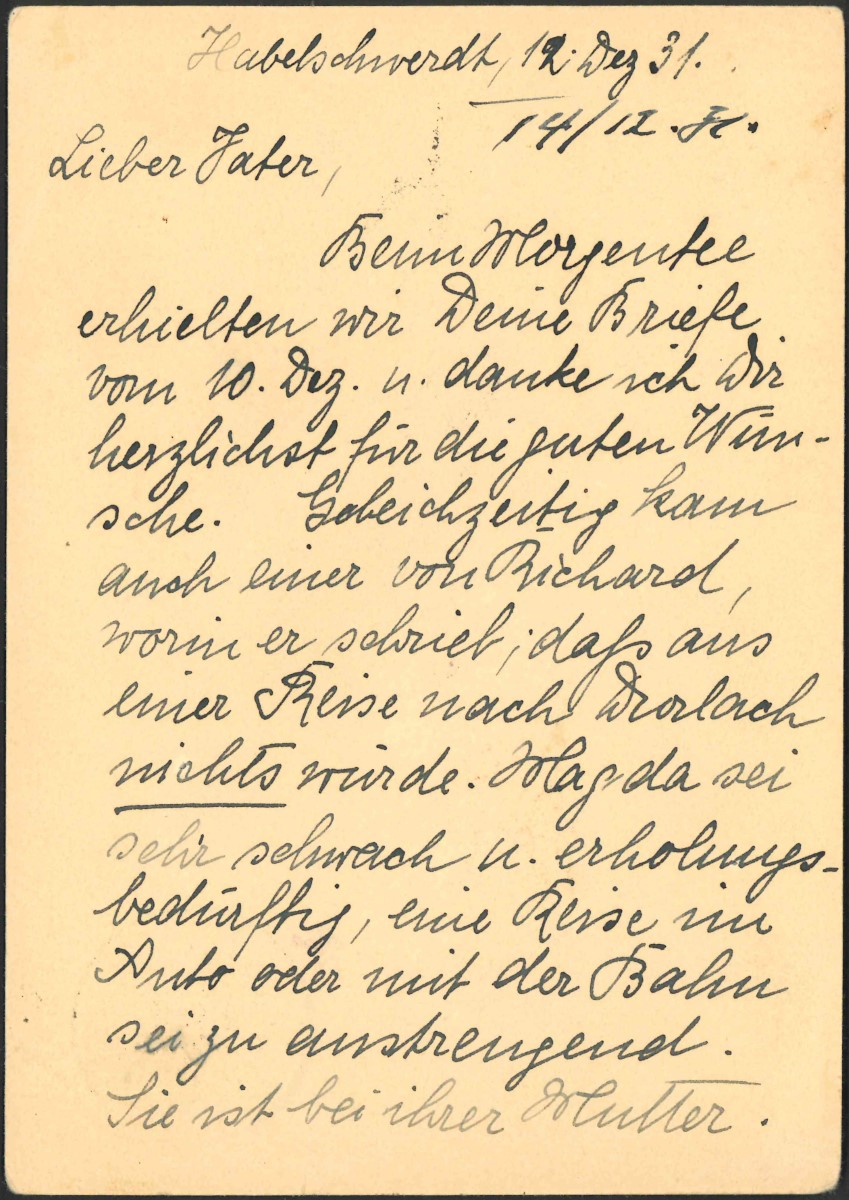 Habelschwerdt, 12. Dez 31.
14/12.
Lieber Vater,
Beim Morgentee
erhielten wir Deine Briefe
vom 10. Dez. u. danke ich Dir
herzlichst für die guten Wün-
sche. Gleichzeitig kam
auch einer von Richard,
worin er schrieb, daß aus
einer Reise nach
nichts würde. Magda sei
sehr schwach u. erholungs-
bedürftig, eine Reise im
Auto oder mit der Bahn
sei zu anstrengend.
Sie ist bei ihrer Mutter.